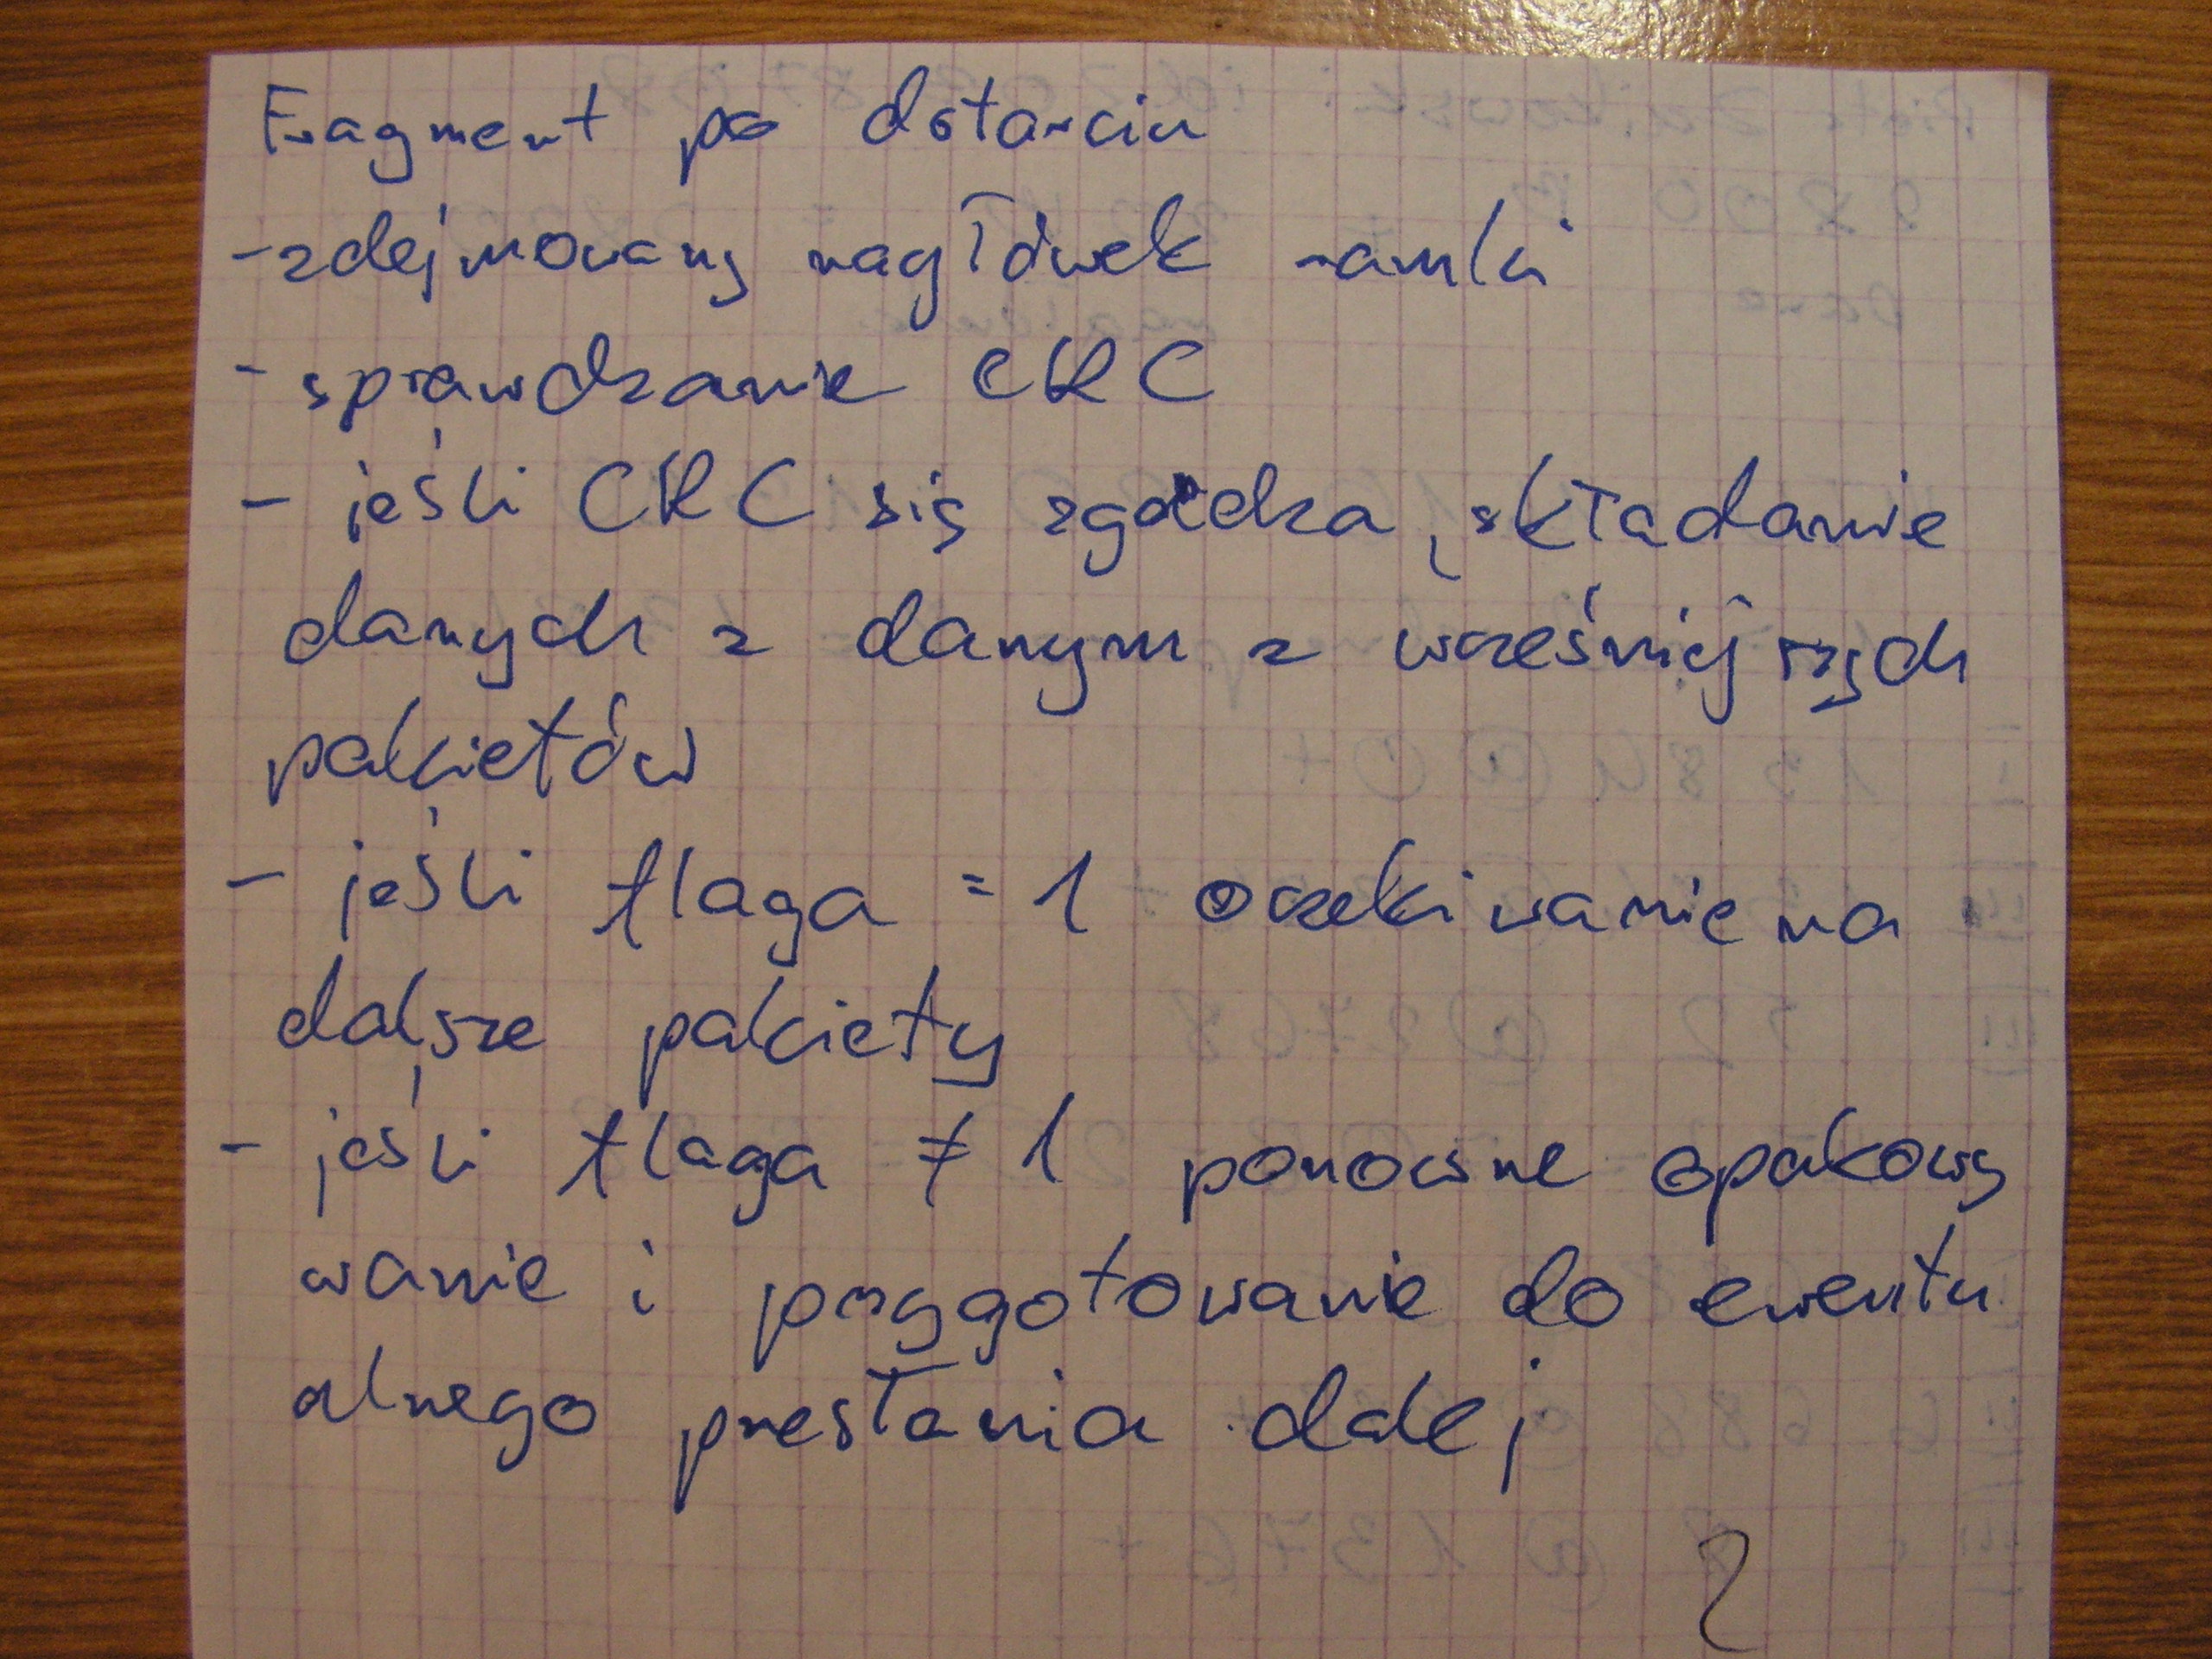 Fragment po dotarciu
- zdejmowany nagłówek ramki
- sprawdzanie CRC
- jeśli CRC się zgadza, składanie
danych z danym z wcześniejszych
pakietów
- jeśli flaga = 1 oczekiwanie na
dalsze pakiety
- jeśli flaga ≠ 1 ponowne opakowy
wanie i przygotowanie do ewentu
alnego przesłania dalej
2